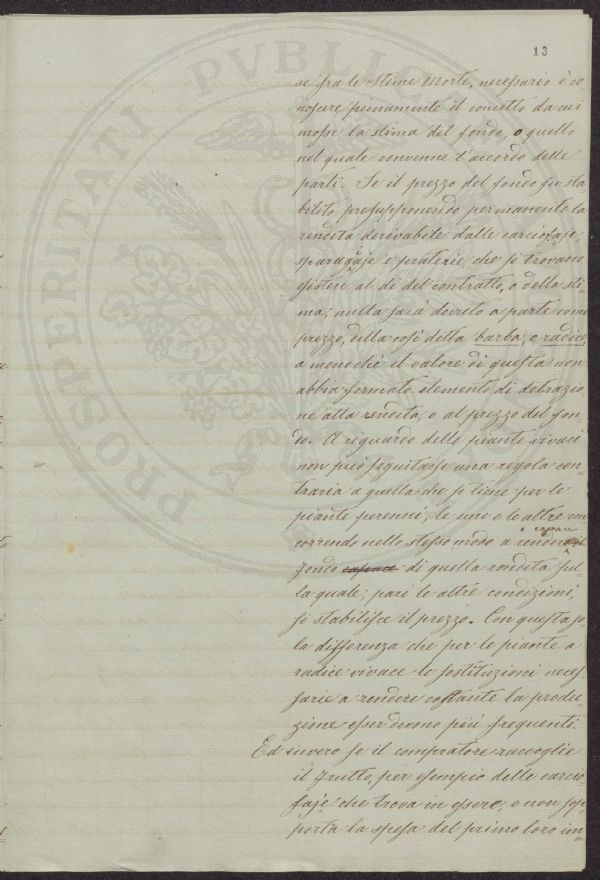 13
PROSPERITATI PVBLICAE
se fra le Stime Morte, necessario è co
noscere pienamente il concetto da cui
mosse la stima del fondo, o quello
nel quale convenne l'accordo delle
parti. Se il prezzo del fondo fu sta
bilito presupponendo permanente la
rendita derivabile dalle carciofaje,
sparagiaje e praterie che si trovano
esistere al dì del contratto, o della sti=
ma; nulla sarà dovuto a parte come
prezzo, della così detta barba, o radice,
a menoché il valore di questa non
abbia formato elemento di detrazio=
ne alla rendita, o al prezzo del fon=
do. A riguardo delle piante vivaci
non può seguitarsi una regola con=
traria a quella che si tiene per le
piante perenni, le une e le altre con
correndo nello stesso modo a rendere capace il
fondo capace di quella rendita sul
la quale, pari le altre condizioni,
si stabilisce il prezzo. Con questa so
la differenza che per le piante a
radice vivace le sostituzioni neces
sarie a rendere costante la produ=
zione esser devono più frequenti.
Ed invero se il compratore raccoglie
il frutto, per esempio delle carcio=
faje che trova in essere, e non sop=
porta la spesa del primo loro im=